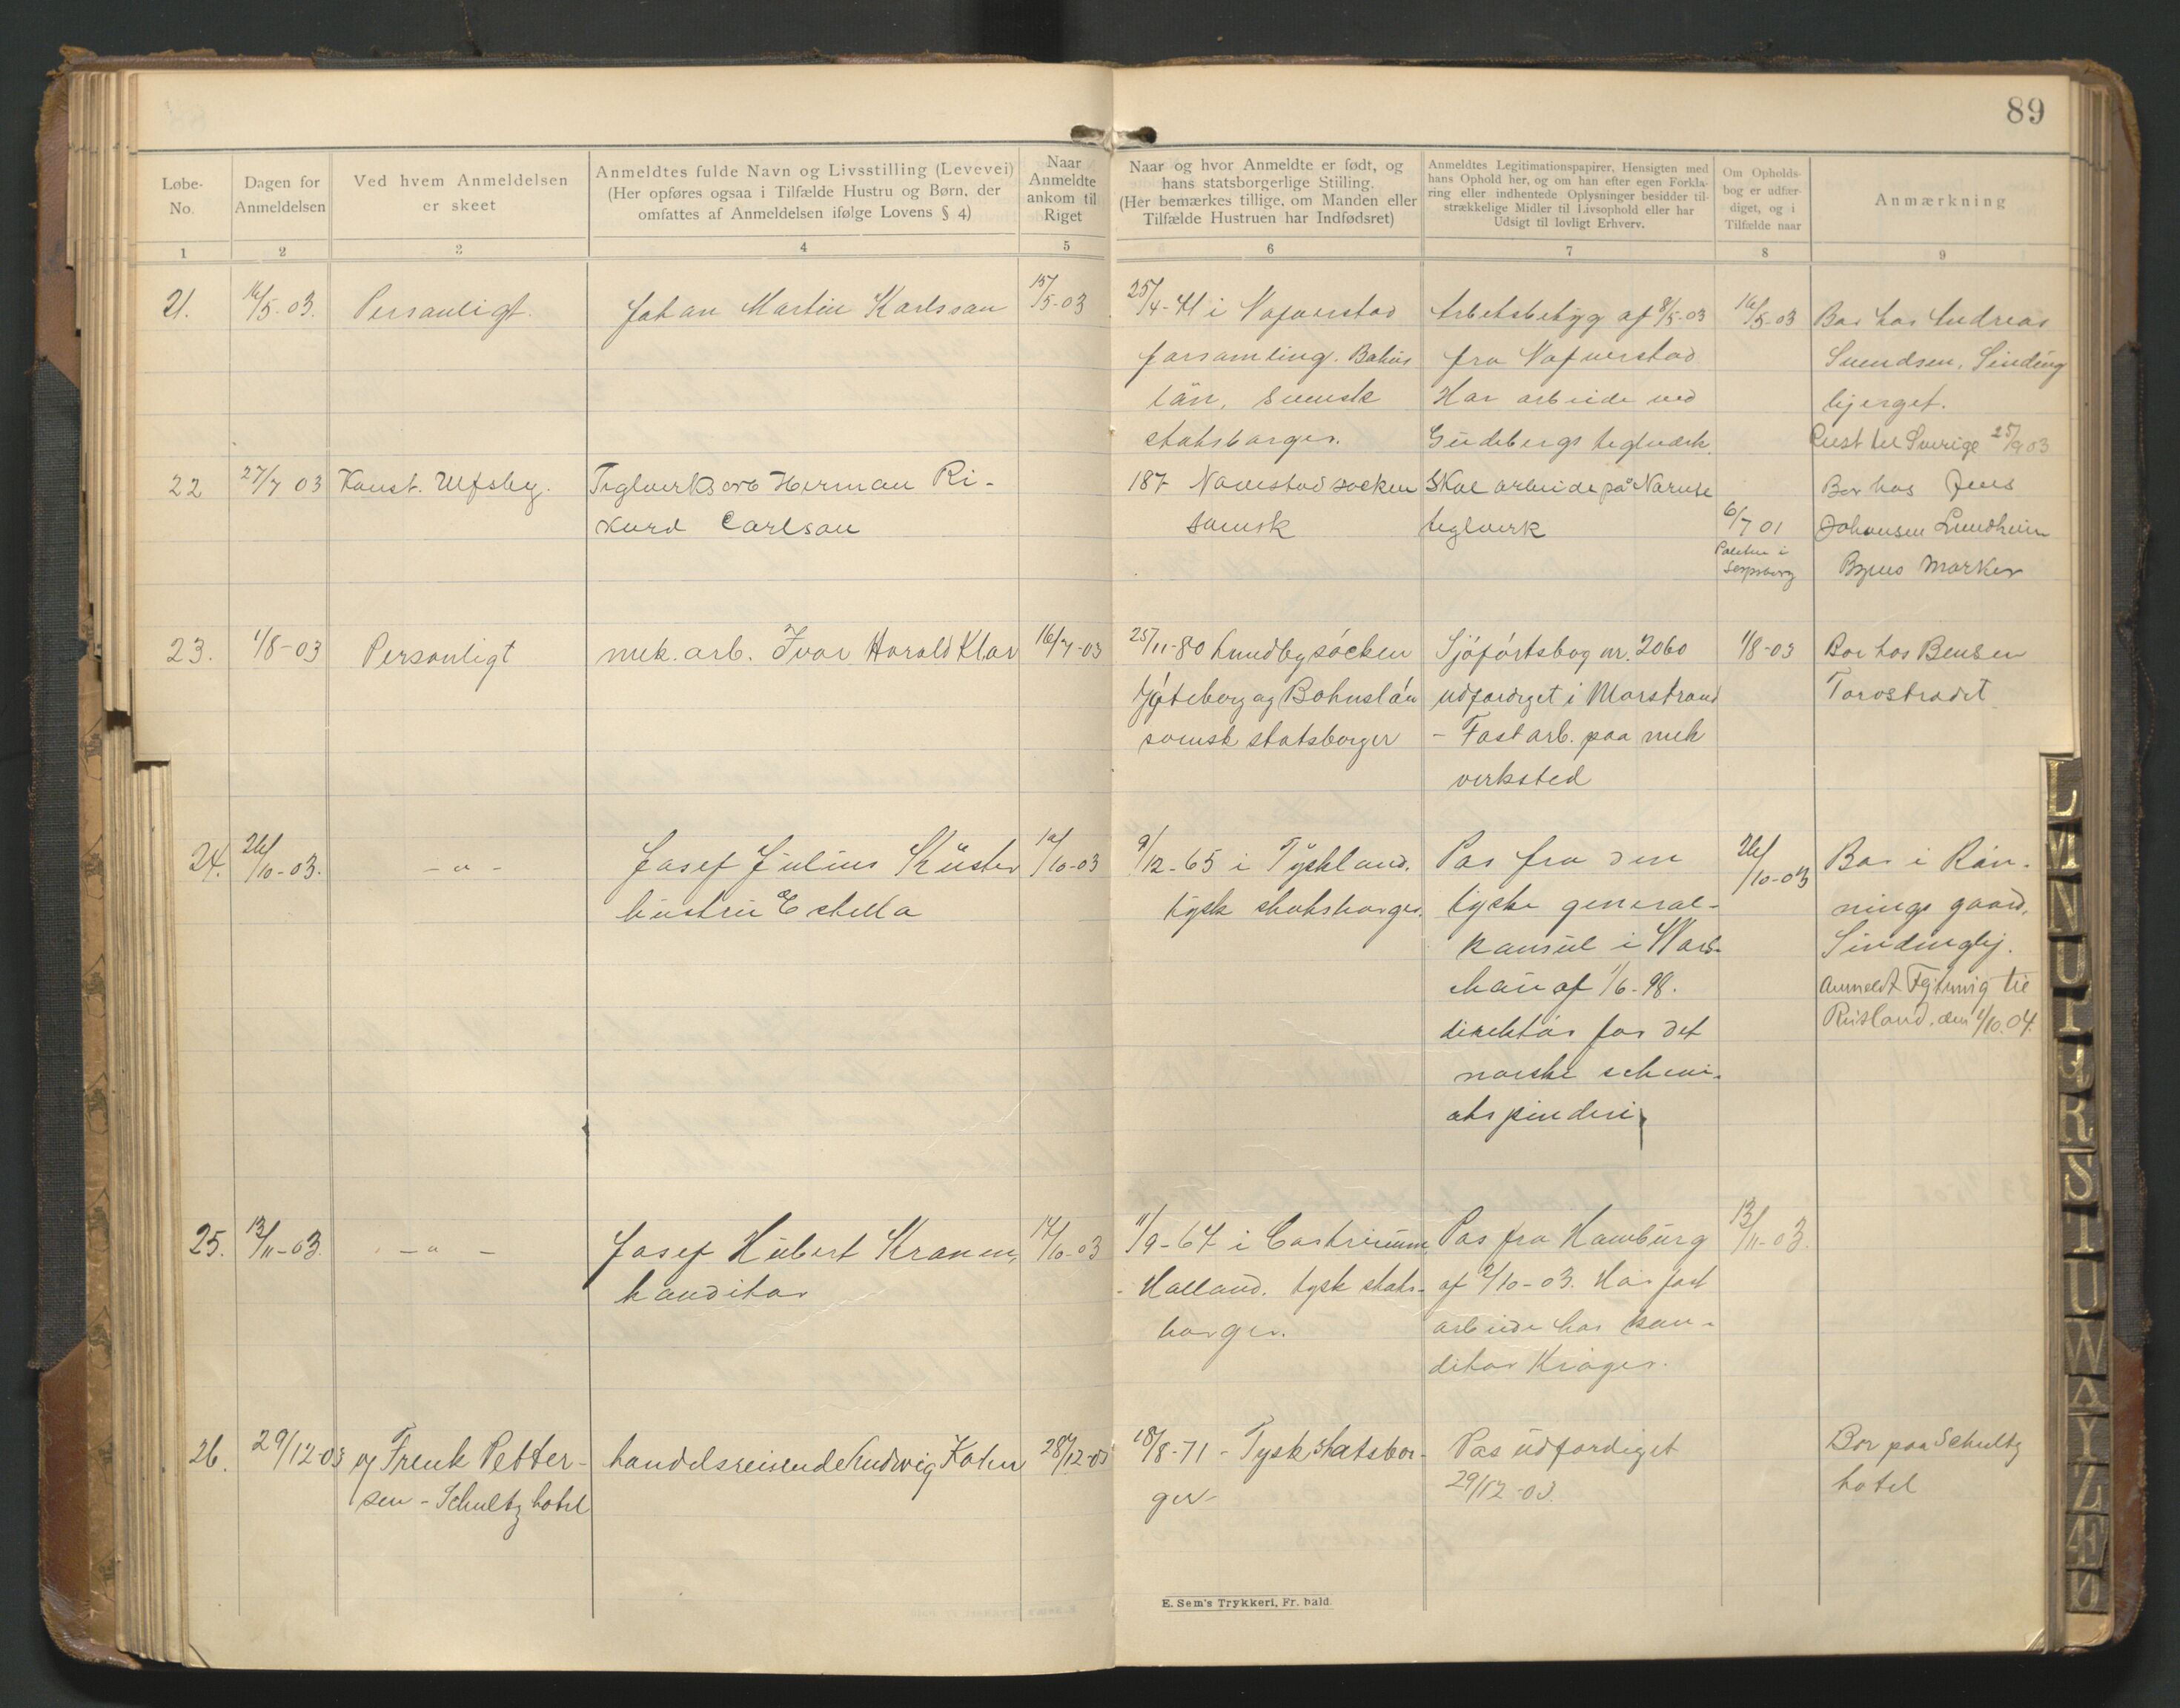 89
Løbe-
No.
Dagen for
Anmeldelsen
Ved hvem Anmeldelsen
er skeet
Anmeldtes fulde Navn og Livsstilling (Levevei)
(Her opføres ogsaa i Tilfælde Hustru og Børn, der
omfattes af Anmeldelsen ifølge Lovens § 4)
Naar
Anmeldte
ankom til
Riget
Naar og hvor Anmeldte er født, og
hans statsborgerlige Stiiling.
(Her bemærkes tillige, om Manden eller
Tilfælde Hustruen har Indfødsret)
Anmeldtes Legitimationspapirer, Hensigten med
hans Ophold her, og om han efter egen Forkla-
ring eller indhentede Oplysninger besidder til-
strækkelige Midler til Livsophold eller har
Udsigt til lovligt Erhverv.
Om Opholds-
bog er udfær-
diget, og i
Tilfælde naar
Anmærkning
1
2
3
4
5
6
7
8
9
21.
16/5-03.
Personligt.
Johan Martin Karlsson
15/5-03
25/4-41 i Nafverstad
forsamling. Bahus
län, svensk
statsborger.
Arbetsbetyg af 8/5-03
fra Nafverstad
Har arbeide ved
Gudebergs teglverk.
16/5-03
Bor hos Andreas
Svendsen, Sinding
bjerget.
Reist til Sverige 25/9 03
22
27/7 03
Konst. Ulfsby.
Teglverksarb Herman Ri-
kard Carlson
187 Naverstad socken
svensk
Skal arbeide på Narnte
teglverk
6/7 01
Politiet i
Sarpsborg
Bor hos Jens
Johansen Lundheim
Byens Marker
23.
1/8-03
Personligt
mek. arb. Ivar Harald Klar
16/7-03
25/11-80 Lundby socken
Göteborg og Bohuslän
svensk statsborger
Sjöfartsbog nr. 2060
udfærdiget i Marstrand
- Fast arb. paa mek
verksted
1/8-03
Bor hos Bensen
Torvstrædet
24.
26/10-03.
- " -
Josef Julius Küster
hustru Estella
10/10-03
9/12-65 i Tyskland.
tysk statsborger.
Pas fra den
tyske general-
konsul i Wars-
chau af 1/6-98.
direktør for det
norske schevi-
otspinderi,
26/10-03
Bor i Røn-
nings gaard,
Sindinglj.
Anmeldt Flytning til
Rusland. den 1/10. 04.
25.
13/11-03.
- " -
Josef Hubert Kranen,
konditor
14/10-03
11/9-67 i Castricum,
- Holland. tysk stats-
borger.
Pas fra Hamburg
af 2/10-03. Har fast
arbeide hos kon-
ditor Krøger.
13/11-03.
26.
29/12-03
af Frenk Petter-
sen - Schultz hotel
handelsreisende Ludwig Kahn
28/12-03
18/8-71 - Tysk statsbor-
ger-
Pas udfærdiget
29/12-03.
Bor paa Schultz
hotel
E. Sem's Trykkeri, Fr. hald.
L
M
N
O
P
Q
R
S
T
U
W
A
Y
Z
Æ
Ø